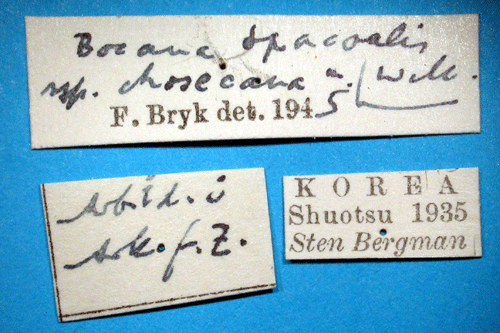 Bocana opacoalis
ssp. choseana n. Wlk.
F. Bryk det. 1945
Avbild. i
Ark. f. Z.
KOREA
Shuotsu 1935
Sten Bergman